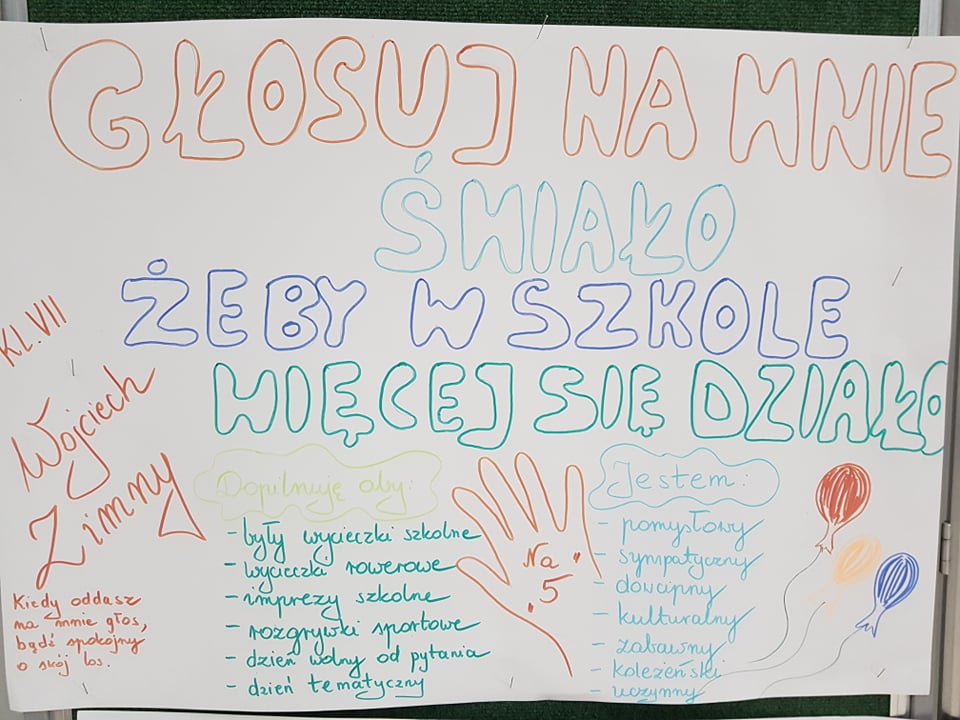 GŁOSUJ NA MNIE
ŚMIAŁO
ŻEBY W SZKOLE
WIĘCEJ SIĘ DZIAŁO
KL. VII
Wojciech
Zimny
Kiedy oddasz
na mnie głos,
bądź spokojny
o swój los.
Dopilnuję aby:
- były wycieczki szkolne
- wycieczki rowerowe
- imprezy szkolne
- rozgrywki sportowe
- dzień wolny od pytania
- dzień tematyczny
Na
5
Jestem:
- pomysłowy
- sympatyczny
- dowcipny
- kulturalny
- zabawny
- koleżeński
- uczynny